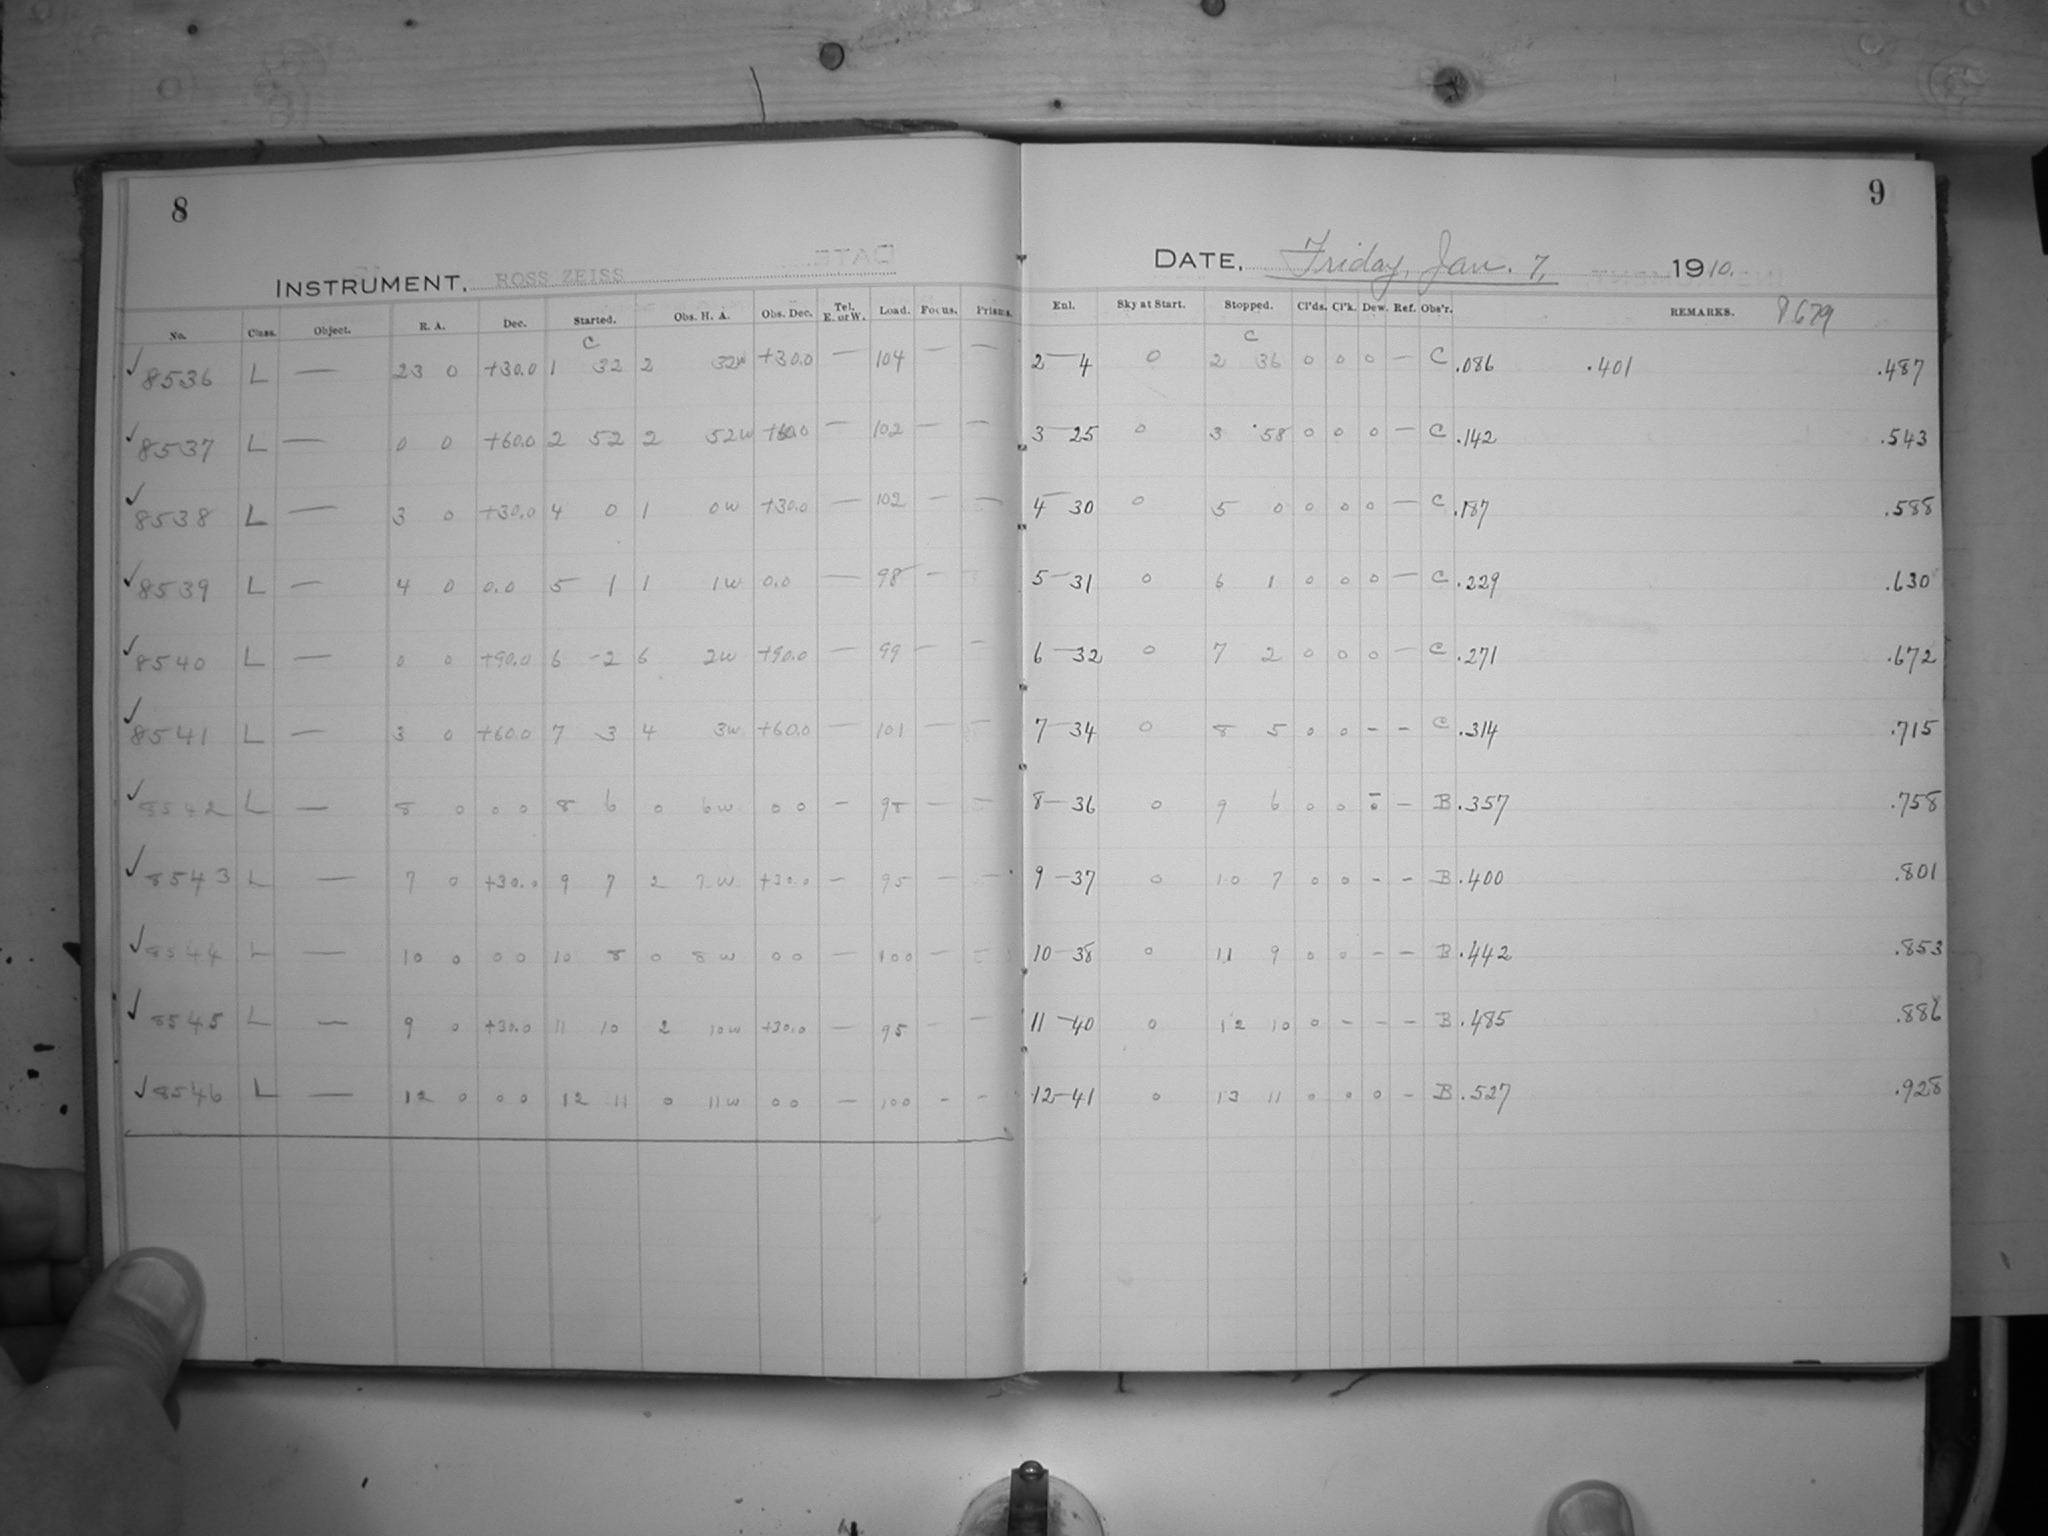 8
9
INSTRUMENT, ROSS ZEISS
DATE, Friday, Jan. 7, 1910.
No. Class. Object. R. A. Dec. Started. Obs. H. A. Obs. Dec. Tel. E. or W. Load. Focus. Prisms. Enl. Sky at Start. Stopped. Cl'ds. Cl'k. Dew. Ref. Obs'r. REMARKS. 8679
C C
✓ 8536 L — 23 0 +30.0 1 32 2 32w +30.0 — 104 — — 2—4 0 2 36 0 0 0 — C .086 .401 .487
✓ 8537 L — 0 0 +60.0 2 52 2 52w +60.0 — 102 — — 3—25 0 3 58 0 0 0 — C .142 .543
✓ 8538 L — 3 0 +30.0 4 0 1 0w +30.0 — 102 — — 4—30 0 5 0 0 0 0 — C .187 .588
✓ 8539 L — 4 0 0.0 5 1 1 1w 0.0 — 98 — 5—31 0 6 1 0 0 0 — C .229 .630
✓ 8540 L — 0 0 +90.0 6 2 6 2w +90.0 — 99 — — 6—32 0 7 2 0 0 0 — C .271 .672
✓ 8541 L — 3 0 +60.0 7 3 4 3w +60.0 — 101 — — 7—34 0 8 5 0 0 - - C .314 .715
✓ 8542 L — 8 0 0 0 8 6 0 6w 0 0 — 98 — — 8—36 0 9 6 0 0 0 — B .357 .758
✓ 8543 L — 7 0 +30.0 9 7 2 7w +30.0 — 95 — — 9—37 0 10 7 0 0 - - B .400 .801
✓ 8544 L — 10 0 0 0 10 8 0 8w 0 0 — 100 — 10—38 0 11 9 0 0 - - B .442 .853
✓ 8545 L — 9 0 +30.0 11 10 2 10w +30.0 — 95 — — 11—40 0 12 10 0 - - - B .485 .886
✓ 8546 L — 12 0 0 0 12 11 0 11w 0 0 — 100 - - 12—41 0 13 11 0 0 0 - B .527 .928